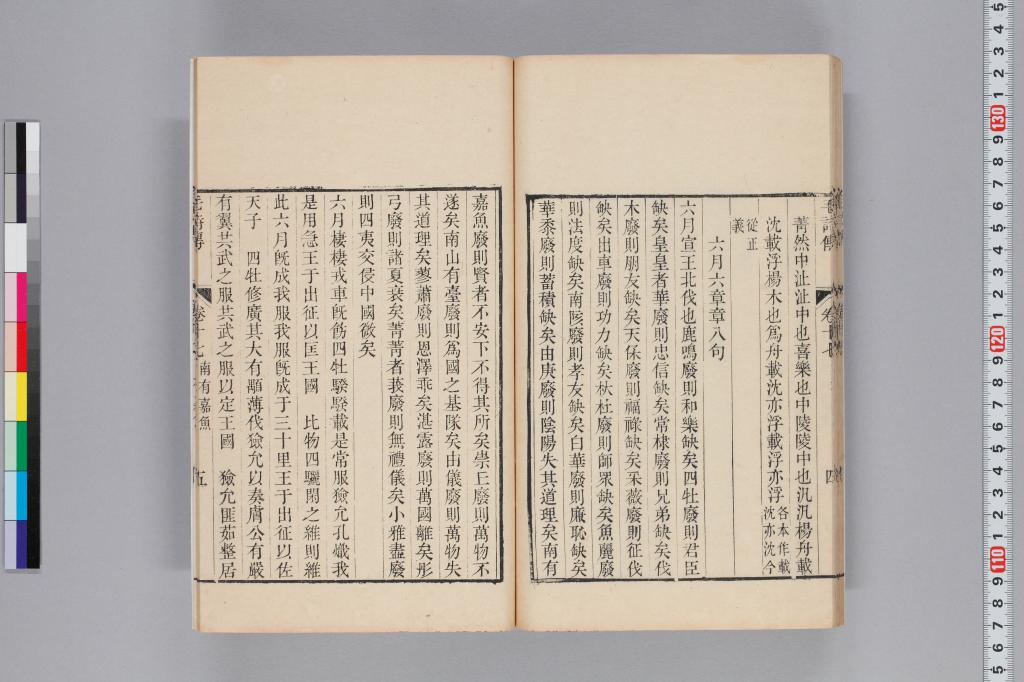 菁然中沚沚中也喜樂也中陵陵中也汎汎楊舟載
沈載浮楊木也爲舟載沈亦浮載浮亦浮各本作載沈亦沈今
從正義
六月六章章八句
六月宣王北伐也鹿鳴廢則和樂缺矣四牡廢則君臣
缺矣皇皇者華廢則忠信缺矣常棣廢則兄弟缺矣伐
木廢則朋友缺矣天保廢則福祿缺矣采薇廢則征伐
缺矣出車廢則功力缺矣杕杜廢則師眾缺矣魚麗廢
則法度缺矣南陔廢則孝友缺矣白華廢則廉恥缺矣
華黍廢則蓄積缺矣由庚廢則陰陽失其道理矣南有
嘉魚廢則賢者不安下不得其所矣崇丘廢則萬物不
遂矣南山有臺廢則爲國之基隊矣由儀廢則萬物失
其道理矣蓼蕭廢則恩澤乖矣湛露廢則萬國離矣彤
弓廢則諸夏衰矣菁菁者莪廢則無禮儀矣小雅盡廢
則四夷交侵中國微矣
六月棲棲戎車旣飭四牡騤騤載是常服玁允孔熾我
是用急王于出征以匡王國 比物四驪閑之維則維
此六月旣成我服我服旣成于三十里王于出征以佐
天子 四牡修廣其大有顒薄伐玁允以奏膚公有嚴
有翼共武之服共武之服以定王國 玁允匪茹整居
毛詩傳 卷十七 四
毛詩傳 卷十七 南有嘉魚 五
130
120
110